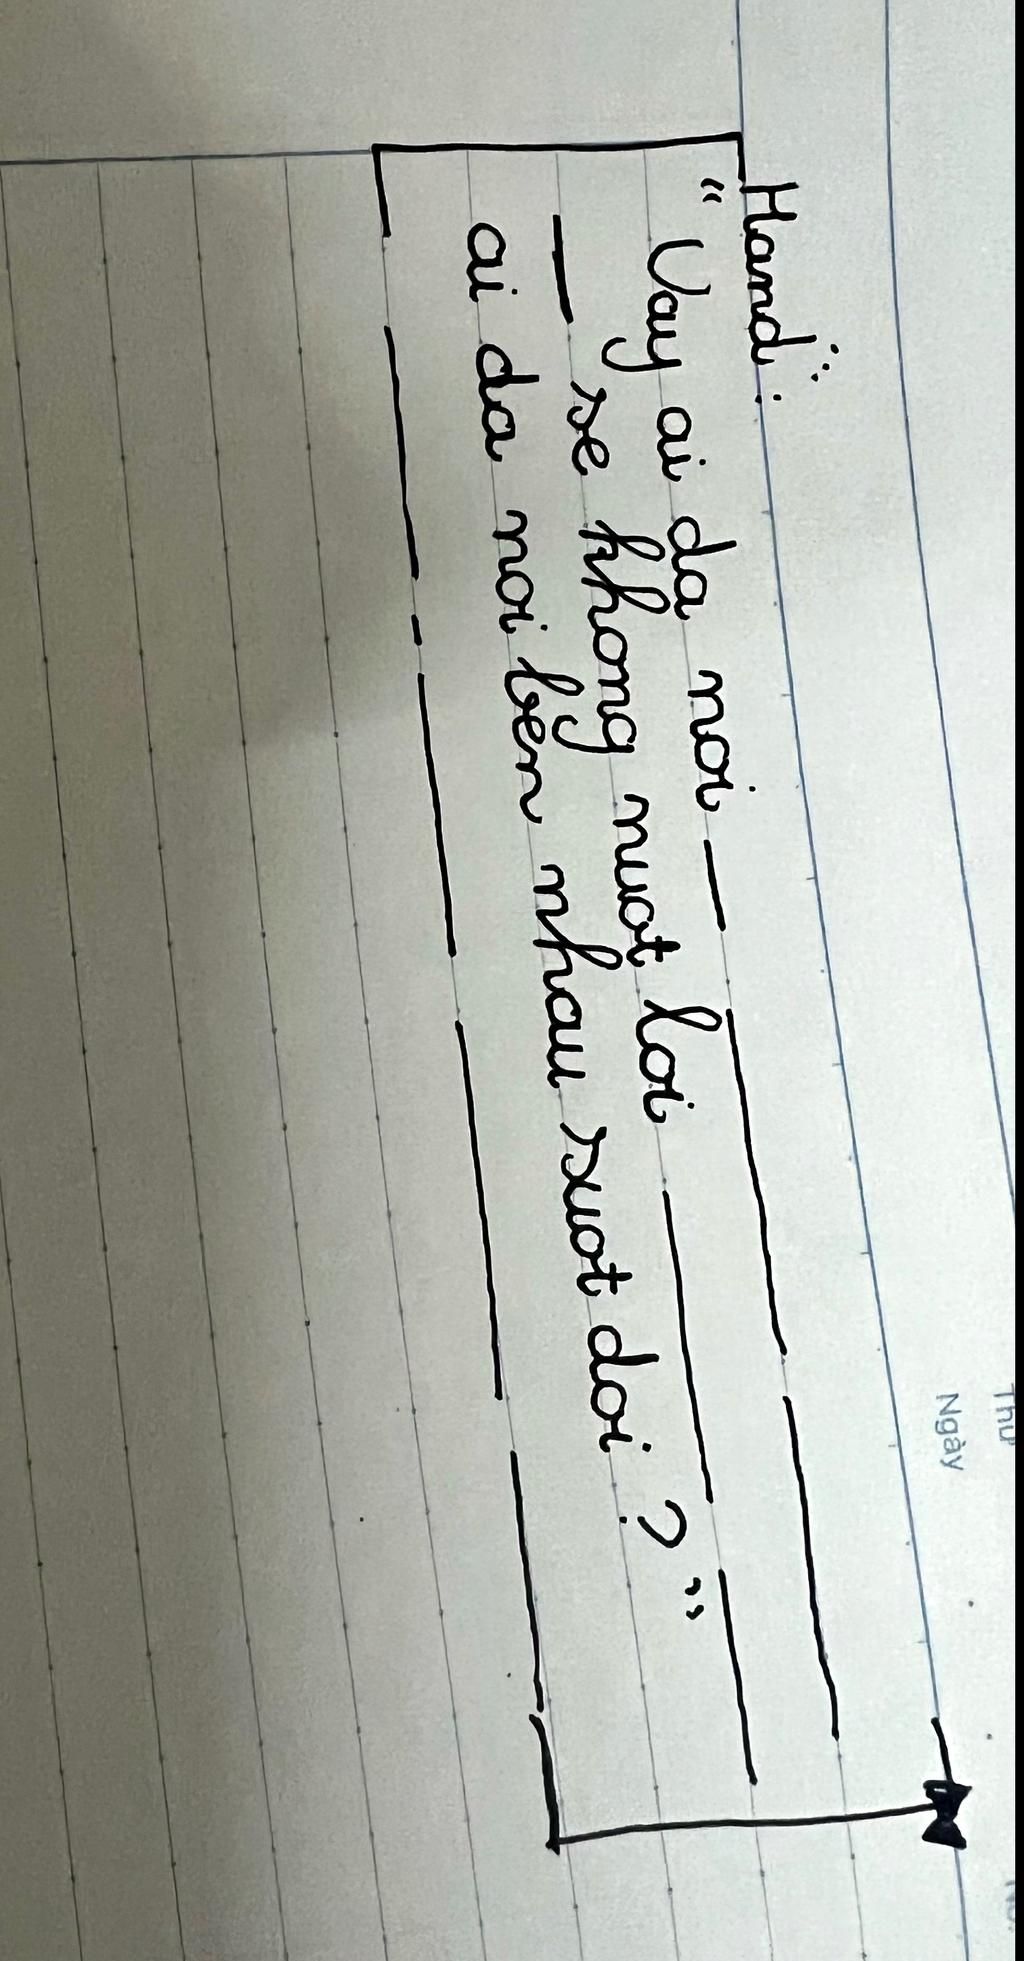 Thứ
Ngày
Hand:
"Vay ai da noi
se khong nuot loi
ai da noi ben nhau suot doi?"